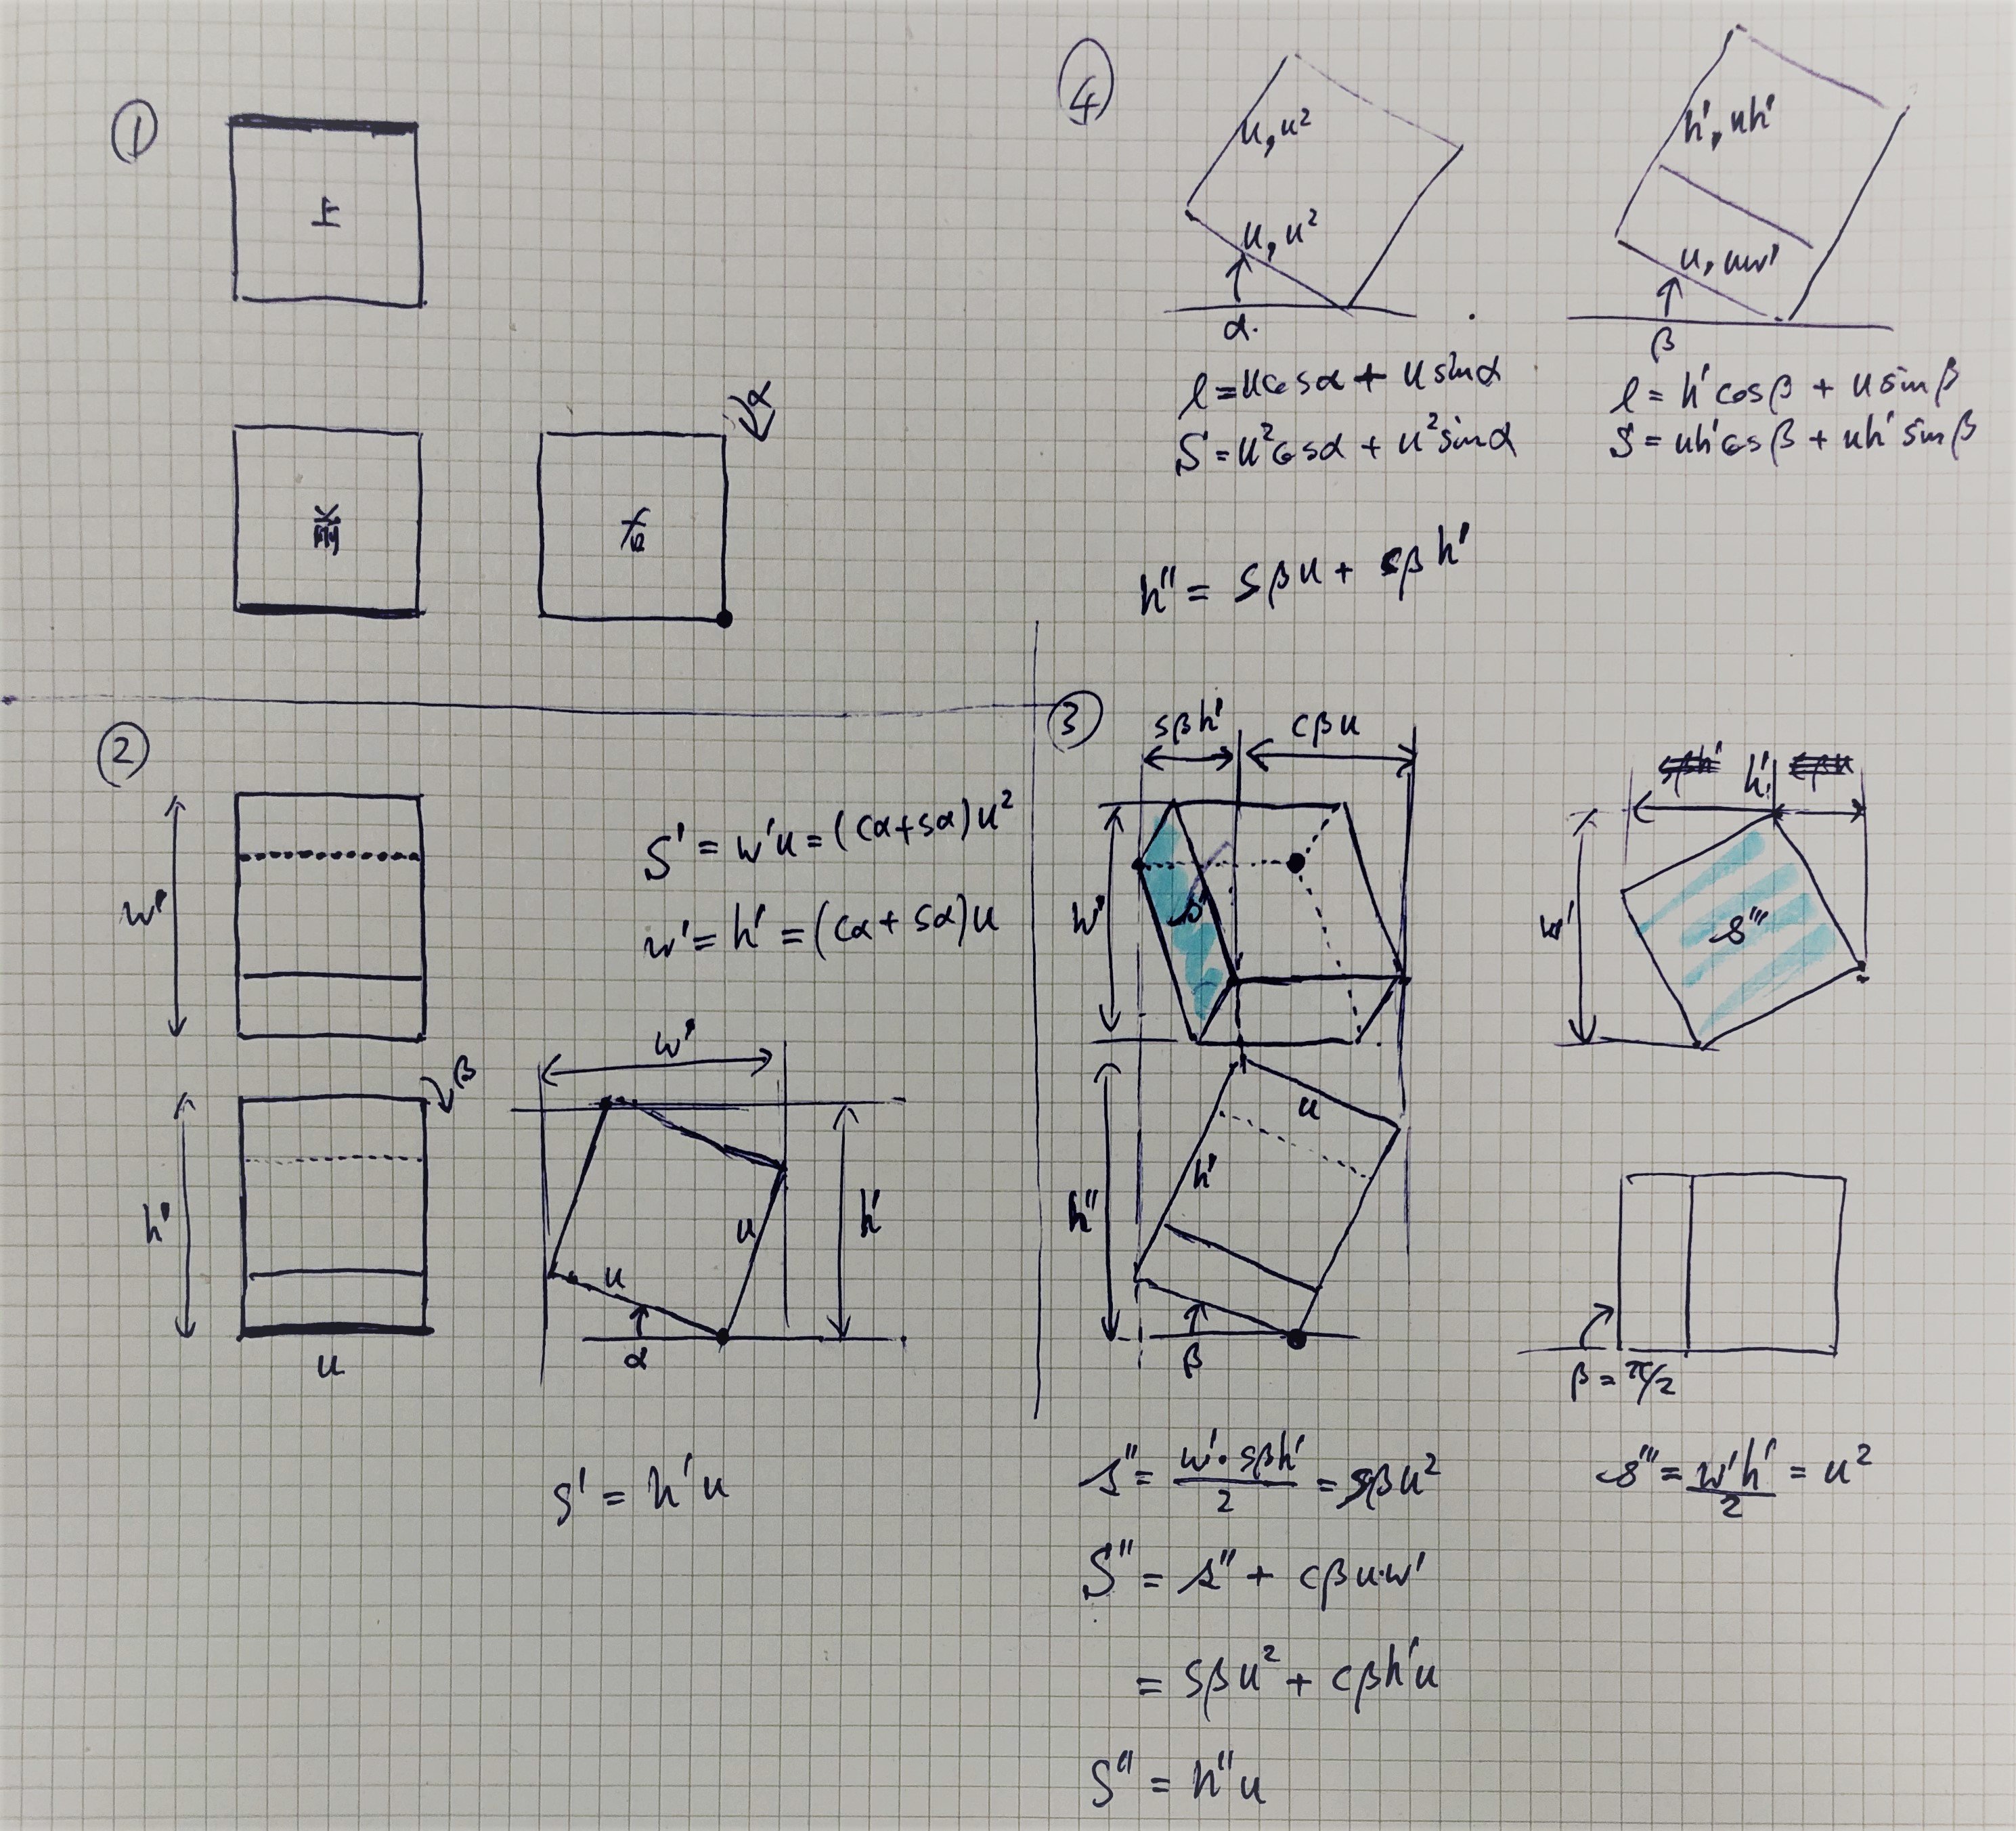 ①
上
前
右
α
④
u, u²
u, u²
α.
l = u cosα + u sinα
S = u²cosα + u²sinα
h', uh'
u, uw'
β
l = h' cosβ + u sinβ
S = uh'cosβ + uh' sinβ
h'' = sβu + sβh'
②
w'
S' = w'u = (cα+sα)u²
w' = h' = (cα+sα)u
h'
β
u
w'
u
u
h'
α
S' = h'u
③
sβh'
cβu
w'
h'
w'
s'''
h''
h'
u
β
β = π/2
s'' = w'・sβh' / 2 = sβu²
s''' = w'h' / 2 = u²
S'' = s'' + cβu・w'
= sβu² + cβh'u
S'' = h''u